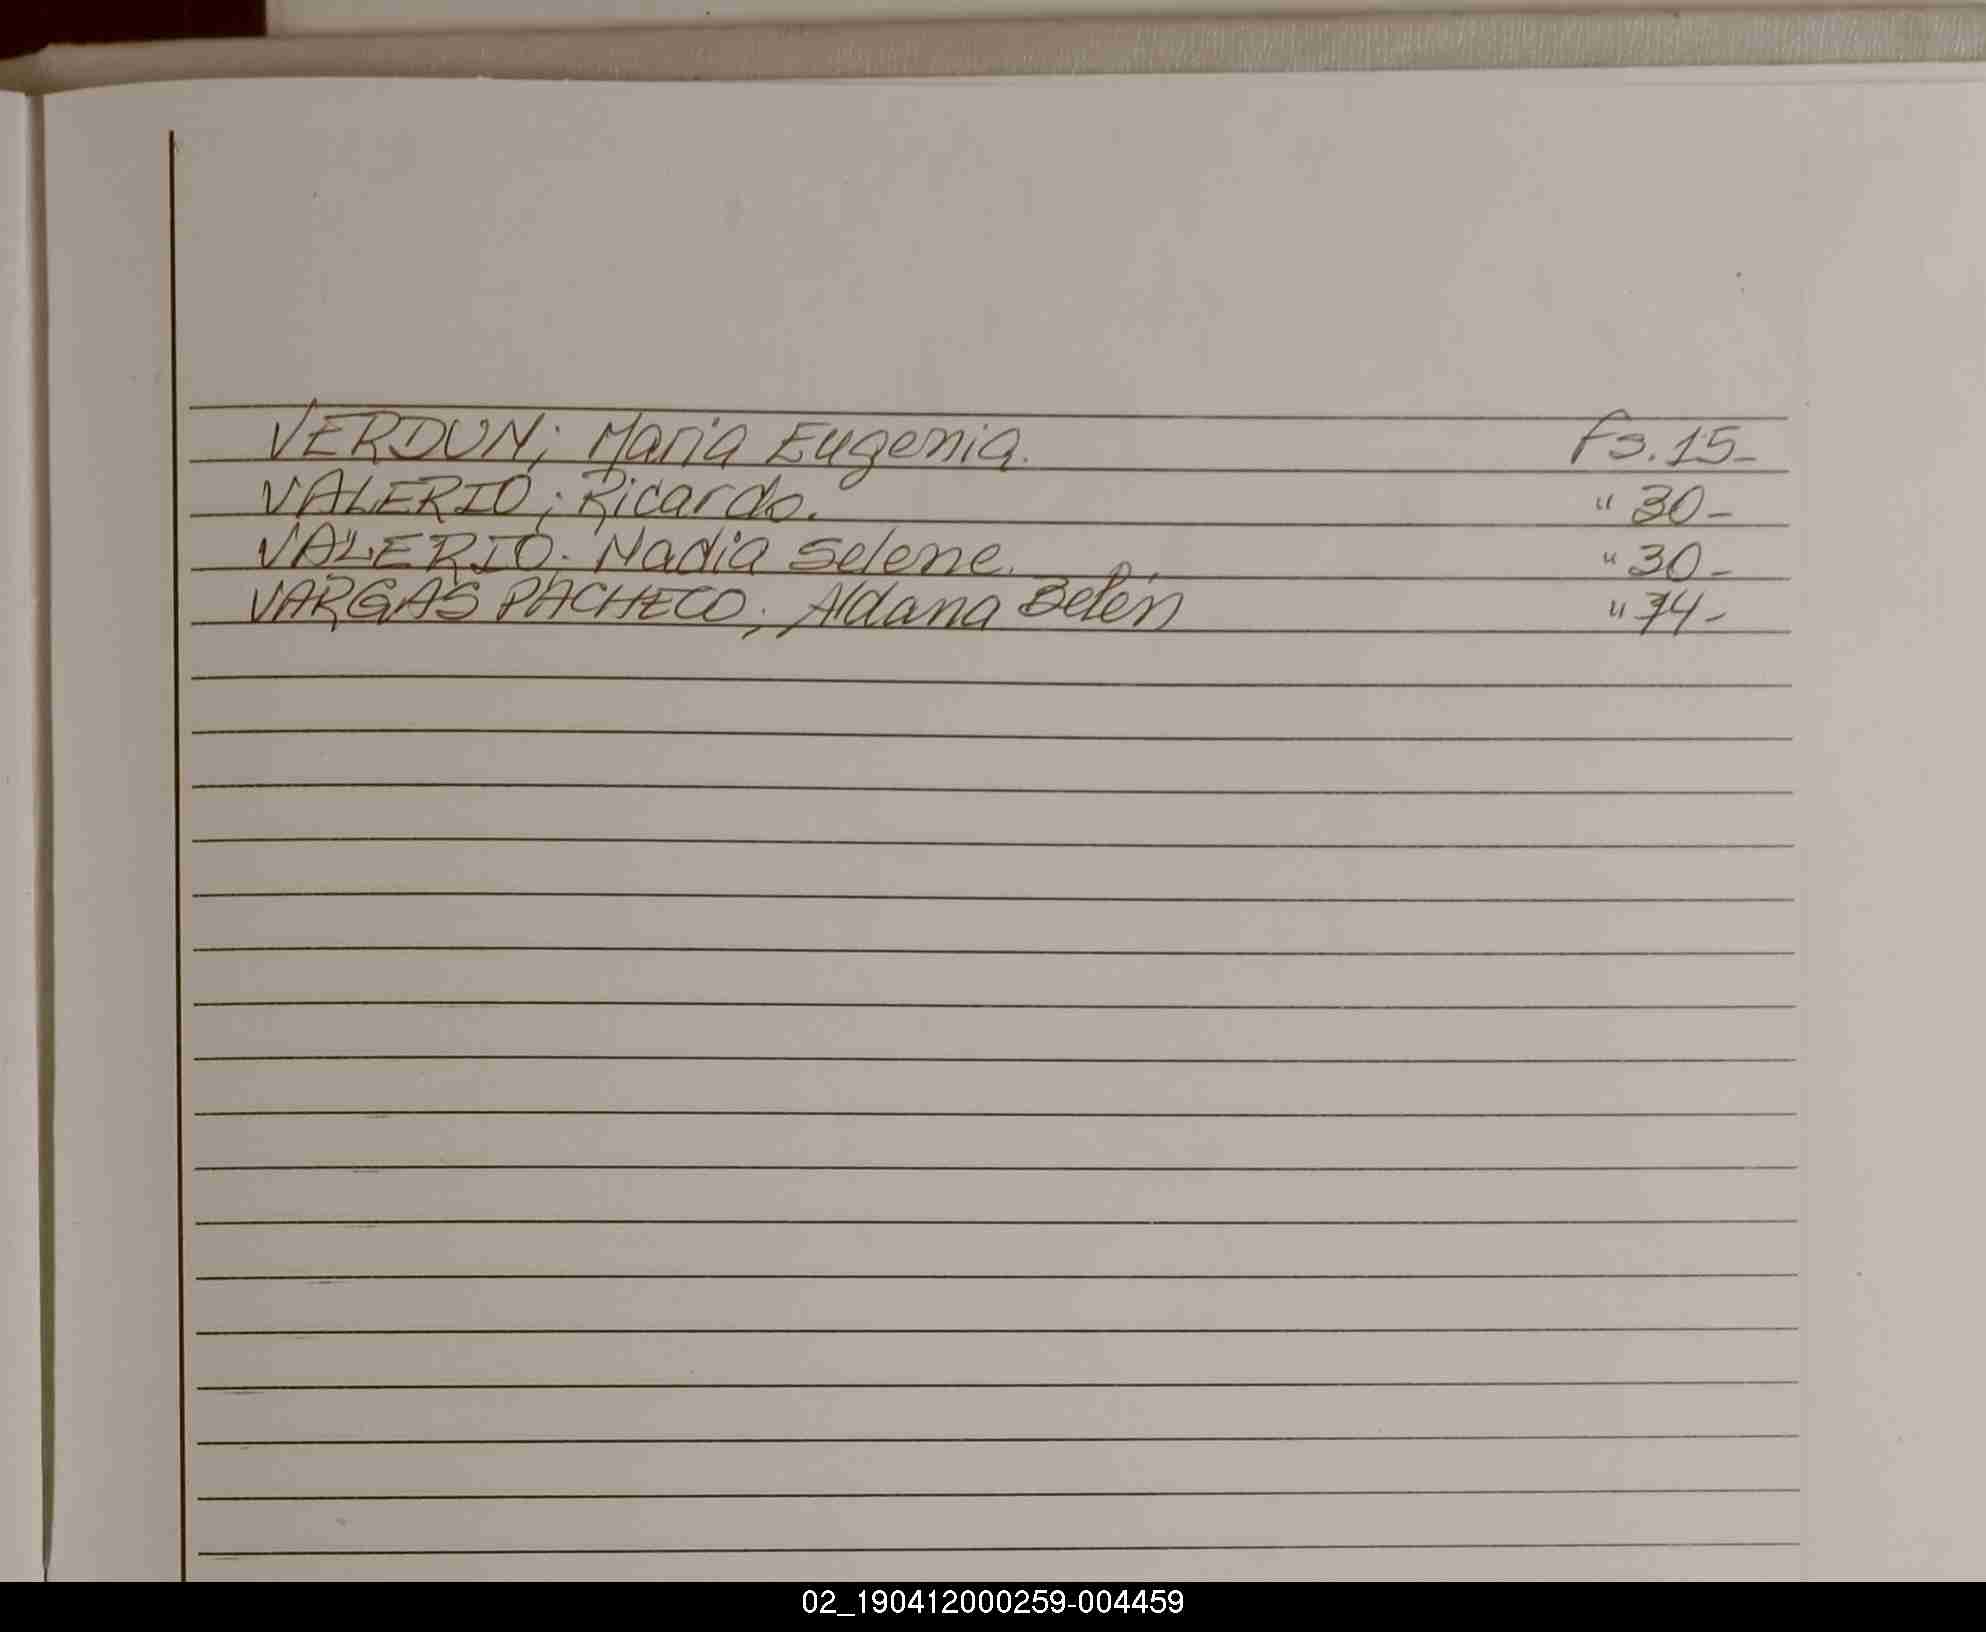 VERDUN; Maria Eugenia. Fs. 15-
VALERIO; Ricardo. " 30-
VALERIO. Nadia Selene. " 30-
VARGAS PACHECO; Aldana Belén " 74-
02_190412000259-004459